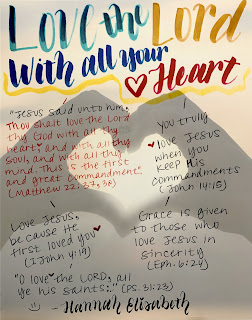 Love the Lord
With all your
Heart
"Jesus said unto him,
Thou shalt love the Lord
thy God with all thy
heart, and with all thy
soul, and with all thy
mind. This is the first
and great commandment."
(Matthew 22:37,38)
You trully
love Jesus
when you
keep His
commandments
(John 14:15)
Love Jesus,
because He
first loved you
(1 John 4:19)
Grace is given
to those who
love Jesus in
sincerity
(Eph. 6:24)
"O love the LORD, all
ye his saints:..." (Ps. 31:23)
- Hannah Elisabeth